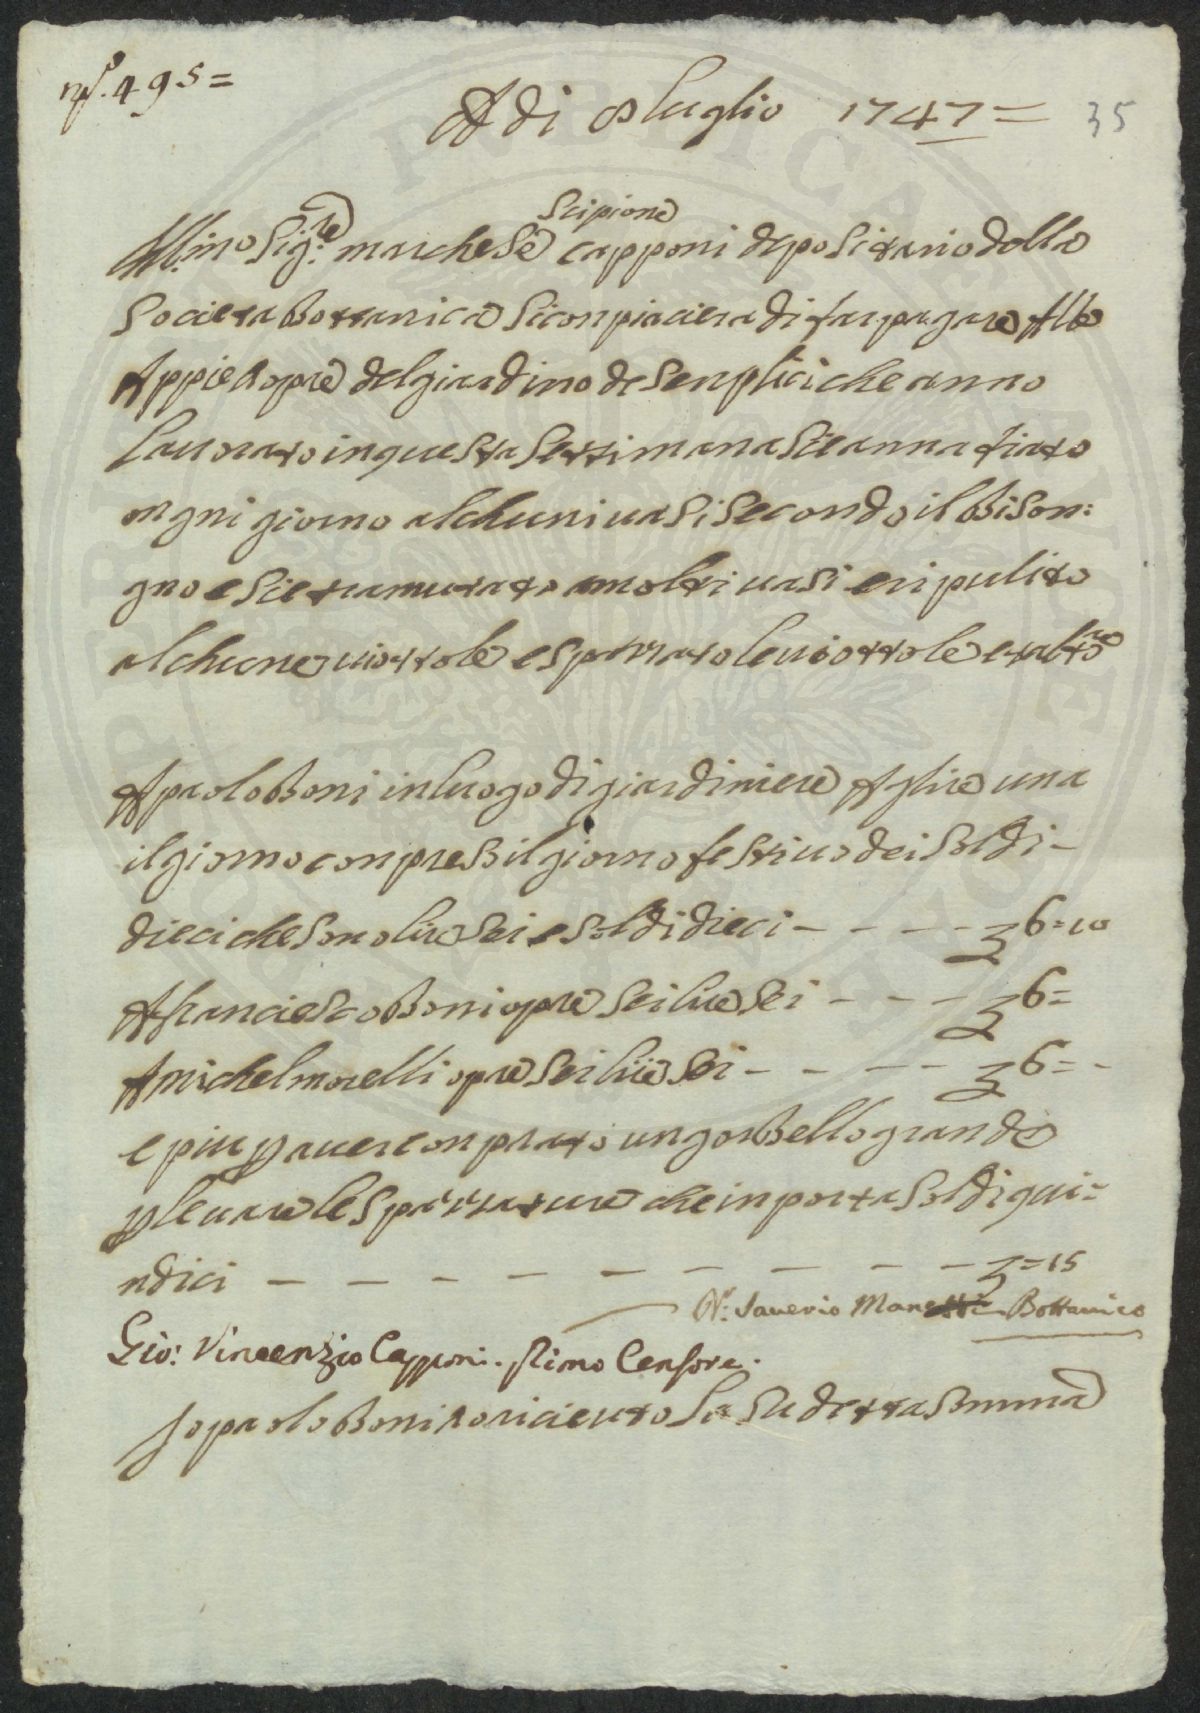 nº. 495=
A di 8 luglio 1747= 35
Scipione
Ill.mo Sig.re marchese capponi depositario della
Societa bottanica Si conpiaciera di far pagare Alle
Appie hopre del giardino de Senplici che anno
lauorato in questa Settimana Sie anna fiato
ongni giorno alchuni uasi Secondo il bison:
gno e Sie tramutato molti uasi e ripulito
alchune uiottole e spazzato le uiottole e altro
A paolo boni in luogo di giardiniere A lire una
il giorno conpreso il giorno festiuo dei Soldi -
dieci che Sono lire Sei e Soldi dieci - - - - 6=10
A franciesco boni opre Sei lire Sei - - - 6=
A michel morelli opre Sei lire Sei - - - - 6= -
e piu p auer conprato un gorbello grande
p leuare le Spazzature che inporta Soldi qui=
ndici - - - - - - - - - =15
Dr. Sauerio Manetti Bottanico
Gio: Vincenzio Capponi. Primo Censore.
Io paolo boni ho riceuto la Su detta Somma